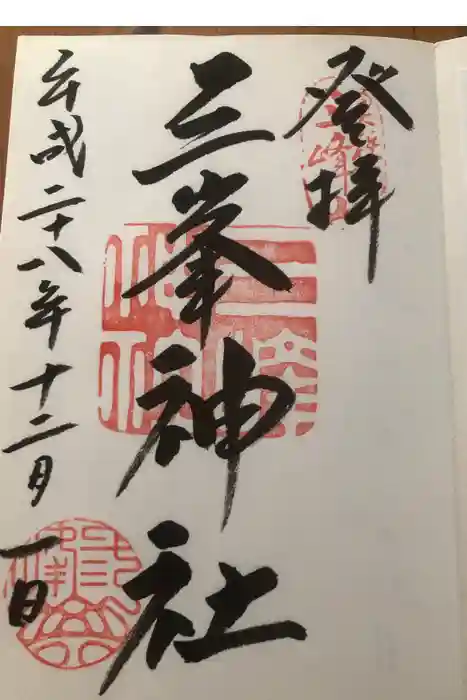 登拝
三峯神社
平成二十八年十二月一日